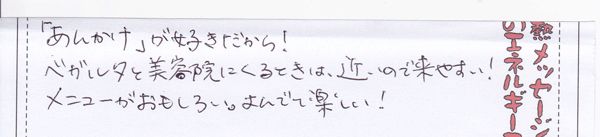 「あんかけ」が好きだから！
ベガルタと美容院にくるときは、近いので来やすい！
メニューがおもしろい。よんでて楽しい！
熱メッセージ
のエネルギー